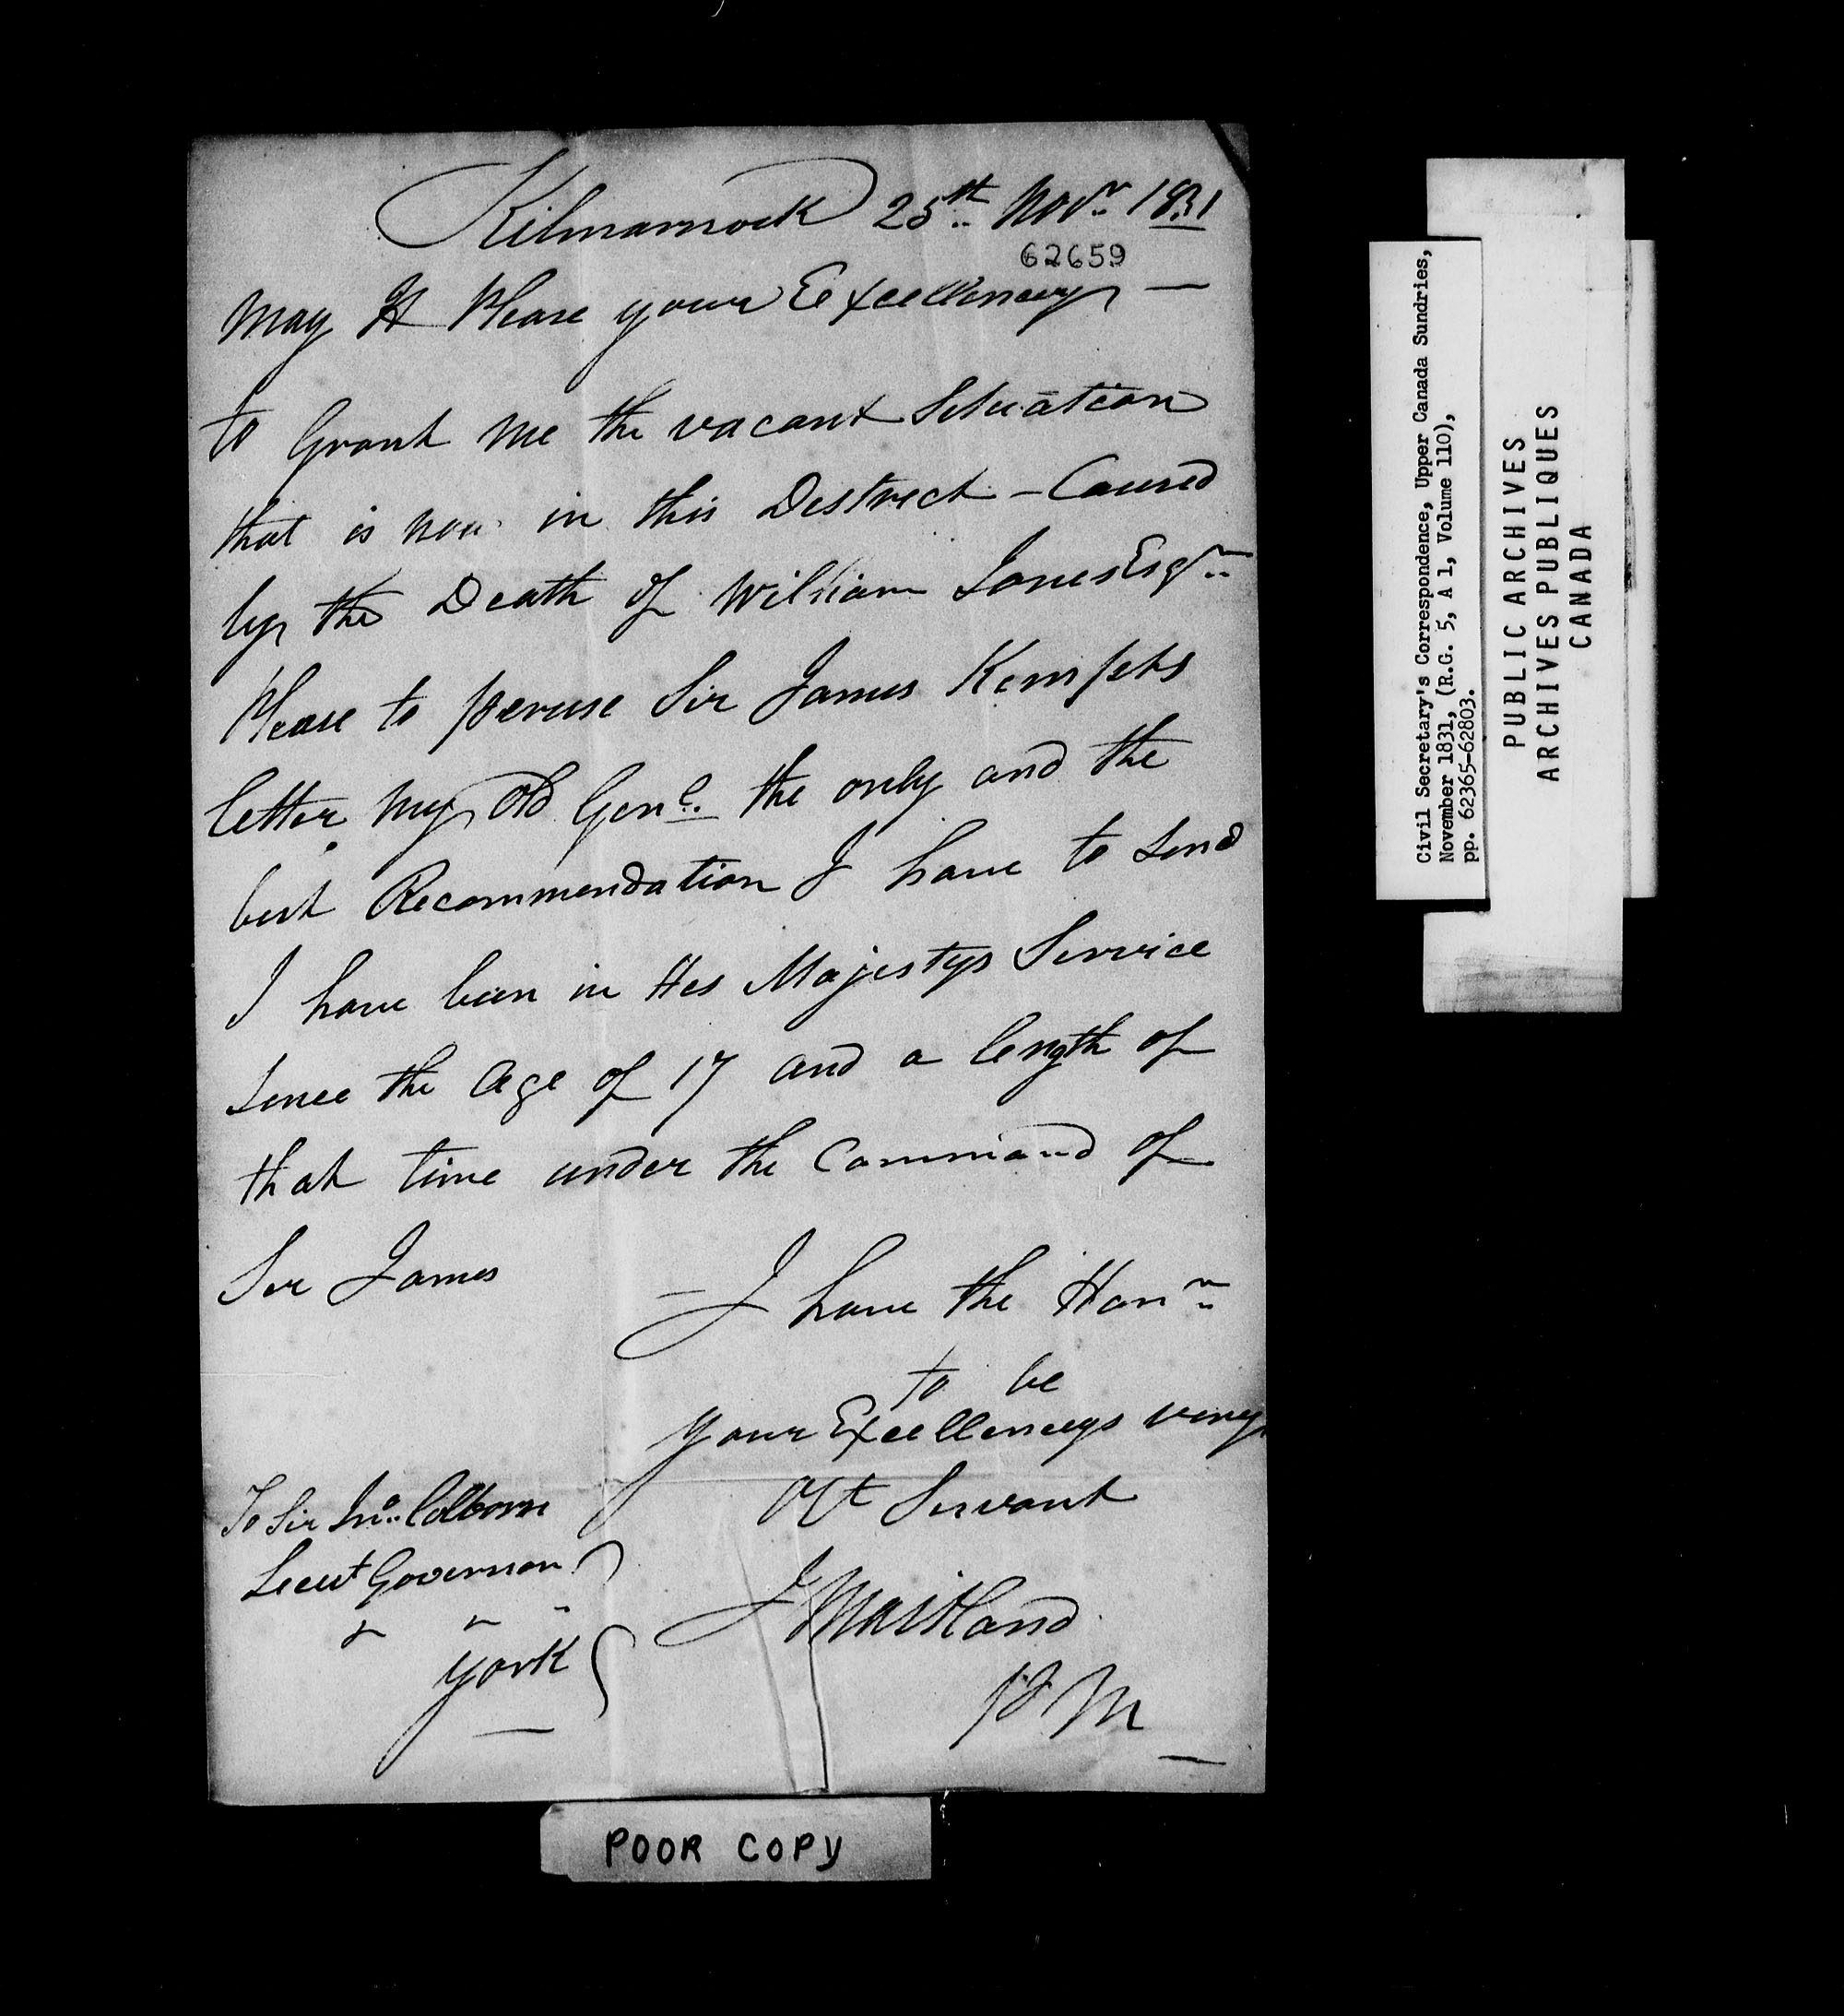 Kilmarnock 25th Novr 1831
62659
May It Please your Excellency —
to Grant me the vacant Situation
that is now in this District — Caused
by the Death of William Jones Esqr
Please to peruse Sir James Kempts
letter my old Genl. the only and the
best Recommendation I have to send
I have been in His Majestys Service
since the age of 17 and a length of
that time under the Command of
Sir James
— I have the Honr
to be
your Excellencys very
Obt Servant
To Sir Jno. Colborne
Lieut Governor
York
J Maitland
P M
POOR COPY
Civil Secretary's Correspondence, Upper Canada Sundries,
November 1831, (R.G. 5, A 1, Volume 110),
pp. 62365-62803.
PUBLIC ARCHIVES
ARCHIVES PUBLIQUES
CANADA